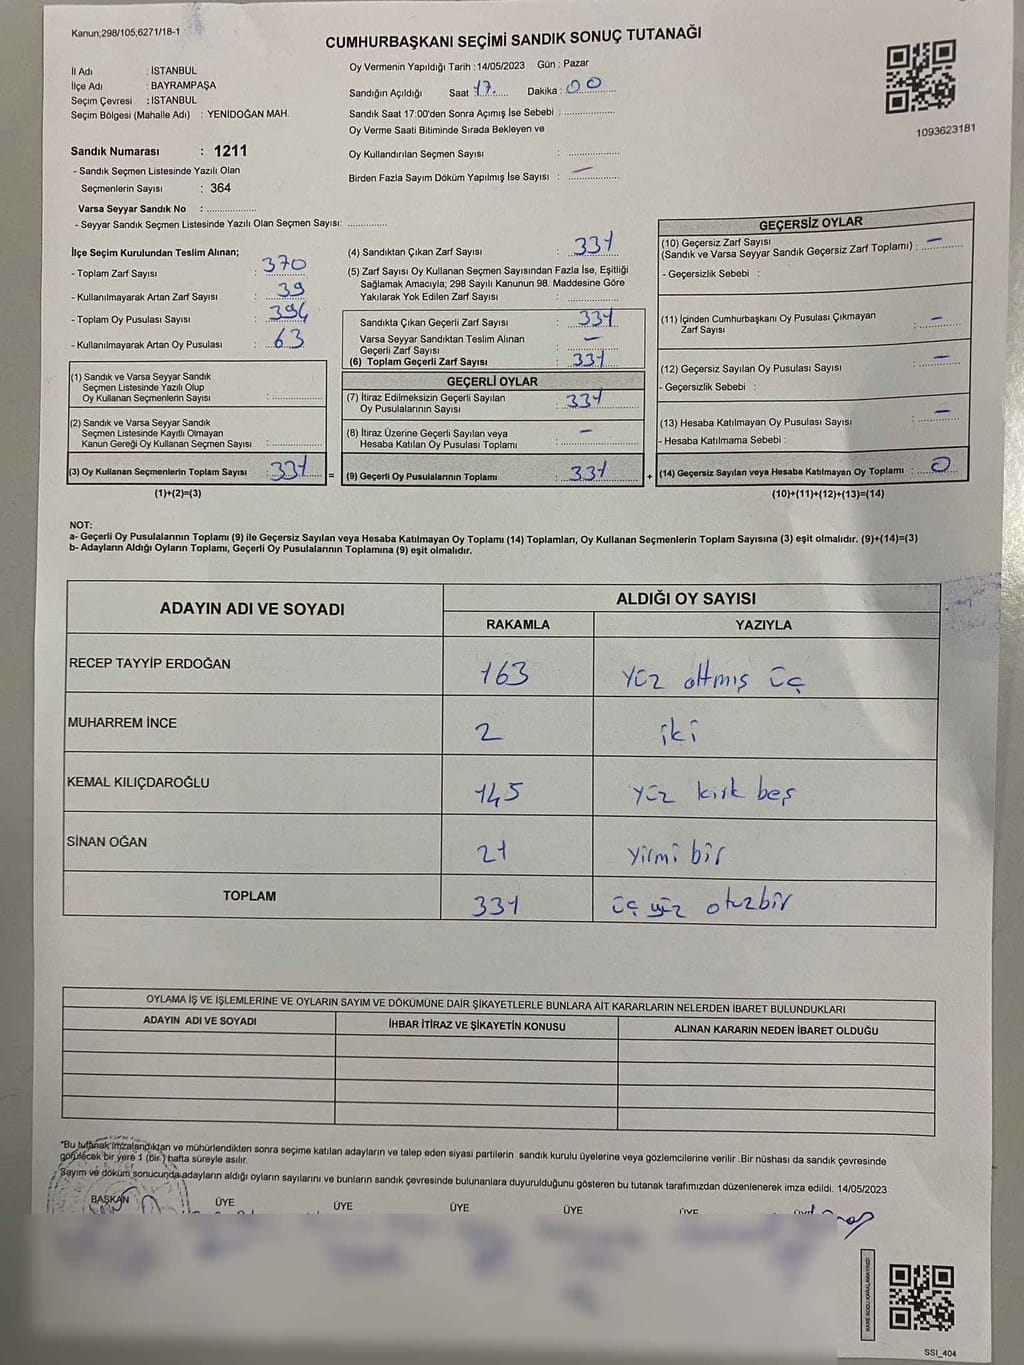 Kanun;298/105;6271/18-1
CUMHURBAŞKANI SEÇİMİ SANDIK SONUÇ TUTANAĞI
İl Adı : İSTANBUL
İlçe Adı : BAYRAMPAŞA
Seçim Çevresi : İSTANBUL
Seçim Bölgesi (Mahalle Adı) : YENİDOĞAN MAH.
Sandık Numarası : 1211
- Sandık Seçmen Listesinde Yazılı Olan
Seçmenlerin Sayısı : 364
Varsa Seyyar Sandık No : ................
- Seyyar Sandık Seçmen Listesinde Yazılı Olan Seçmen Sayısı: .............
Oy Vermenin Yapıldığı Tarih :14/05/2023 Gün : Pazar
Sandığın Açıldığı Saat 17. Dakika: 00
Sandık Saat 17:00'den Sonra Açımış İse Sebebi : ................
Oy Verme Saati Bitiminde Sırada Bekleyen ve
Oy Kullandırılan Seçmen Sayısı : ................
Birden Fazla Sayım Döküm Yapılmış İse Sayısı : —
1093623181
İlçe Seçim Kurulundan Teslim Alınan;
- Toplam Zarf Sayısı : 370
- Kullanılmayarak Artan Zarf Sayısı : 39
- Toplam Oy Pusulası Sayısı : 394
- Kullanılmayarak Artan Oy Pusulası : 63
(1) Sandık ve Varsa Seyyar Sandık
Seçmen Listesinde Yazılı Olup
Oy Kullanan Seçmenlerin Sayısı : ................
(2) Sandık ve Varsa Seyyar Sandık
Seçmen Listesinde Kayıtlı Olmayan
Kanun Gereği Oy Kullanan Seçmen Sayısı : ................
(3) Oy Kullanan Seçmenlerin Toplam Sayısı : 331
(1)+(2)=(3)
(4) Sandıktan Çıkan Zarf Sayısı : 331
(5) Zarf Sayısı Oy Kullanan Seçmen Sayısından Fazla İse, Eşitliği
Sağlamak Amacıyla; 298 Sayılı Kanunun 98. Maddesine Göre
Yakılarak Yok Edilen Zarf Sayısı : ................
Sandıkta Çıkan Geçerli Zarf Sayısı : 331
Varsa Seyyar Sandıktan Teslim Alınan
Geçerli Zarf Sayısı : —
(6) Toplam Geçerli Zarf Sayısı : 331
GEÇERLİ OYLAR
(7) İtiraz Edilmeksizin Geçerli Sayılan
Oy Pusulalarının Sayısı : 331
(8) İtiraz Üzerine Geçerli Sayılan veya
Hesaba Katılan Oy Pusulası Toplamı : —
= (9) Geçerli Oy Pusulalarının Toplamı : 331 +
GEÇERSİZ OYLAR
(10) Geçersiz Zarf Sayısı
(Sandık ve Varsa Seyyar Sandık Geçersiz Zarf Toplamı) : —
- Geçersizlik Sebebi :
(11) İçinden Cumhurbaşkanı Oy Pusulası Çıkmayan
Zarf Sayısı : —
(12) Geçersiz Sayılan Oy Pusulası Sayısı : —
- Geçersizlik Sebebi :
(13) Hesaba Katılmayan Oy Pusulası Sayısı : —
- Hesaba Katılmama Sebebi :
(14) Geçersiz Sayılan veya Hesaba Katılmayan Oy Toplamı : 0
(10)+(11)+(12)+(13)=(14)
NOT:
a- Geçerli Oy Pusulalarının Toplamı (9) ile Geçersiz Sayılan veya Hesaba Katılmayan Oy Toplamı (14) Toplamları, Oy Kullanan Seçmenlerin Toplam Sayısına (3) eşit olmalıdır. (9)+(14)=(3)
b- Adayların Aldığı Oyların Toplamı, Geçerli Oy Pusulalarının Toplamına (9) eşit olmalıdır.
ADAYIN ADI VE SOYADI ALDIĞI OY SAYISI
RAKAMLA YAZIYLA
RECEP TAYYİP ERDOĞAN 163 yüz altmış üç
MUHARREM İNCE 2 iki
KEMAL KILIÇDAROĞLU 145 yüz kırk beş
SİNAN OĞAN 21 yirmi bir
TOPLAM 331 üç yüz otuzbir
OYLAMA İŞ VE İŞLEMLERİNE VE OYLARIN SAYIM VE DÖKÜMÜNE DAİR ŞİKAYETLERLE BUNLARA AİT KARARLARIN NELERDEN İBARET BULUNDUKLARI
ADAYIN ADI VE SOYADI İHBAR İTİRAZ VE ŞİKAYETİN KONUSU ALINAN KARARIN NEDEN İBARET OLDUĞU
"Bu tutanak imzalandıktan ve mühürlendikten sonra seçime katılan adayların ve talep eden siyasi partilerin sandık kurulu üyelerine veya gözlemcilerine verilir .Bir nüshası da sandık çevresinde
görülecek bir yere 1 (bir ) hafta süreyle asılır.
Sayım ve döküm sonucunda adayların aldığı oyların sayılarını ve bunların sandık çevresinde bulunanlara duyurulduğunu gösteren bu tutanak tarafımızdan düzenlenerek imza edildi. 14/05/2023
BAŞKAN ÜYE ÜYE ÜYE ÜYE ÜYE ÜYE
KARE KODU KARALAMAYINIZ!
SSI_404